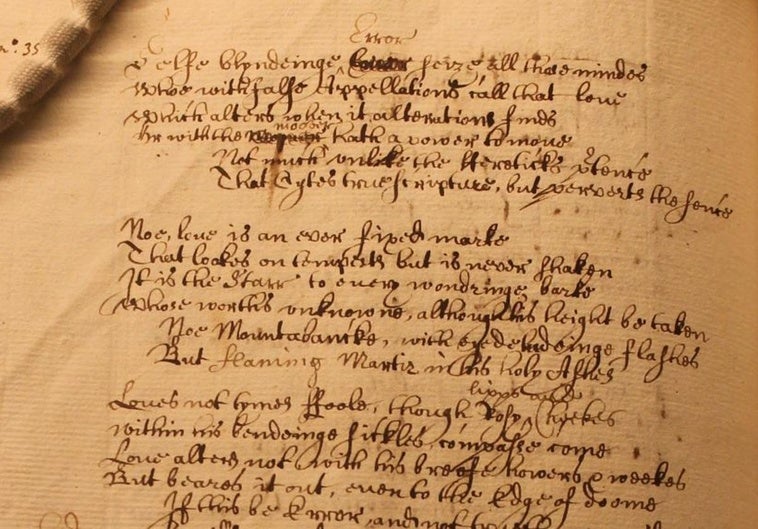 Error
selfe blyndeinge seize all those mindes
Who with false Appellations call that love
Which alters when it alterations finds
Or with the mover hath a power to move
Not much unlike the Hereticks p̱tence
That Cytes true scripture, but perverts the sence
Noe, love is an ever fixed marke
That lookes on tempests but is never shaken
It is the Starr to every wandringe barke
Whose worth's unknowne, although his height be taken
Noe Mountabancke, with eye deludeinge flashes
But flaming Martir in his holy Ashes
lipps and
Loves not tymes Foole, though Rosy Cheekes
within his bendeinge sickles compasse come
Love alters not with his breife howers & weekes
But beares it out, even to the Edge of doome
If this be Error, and not